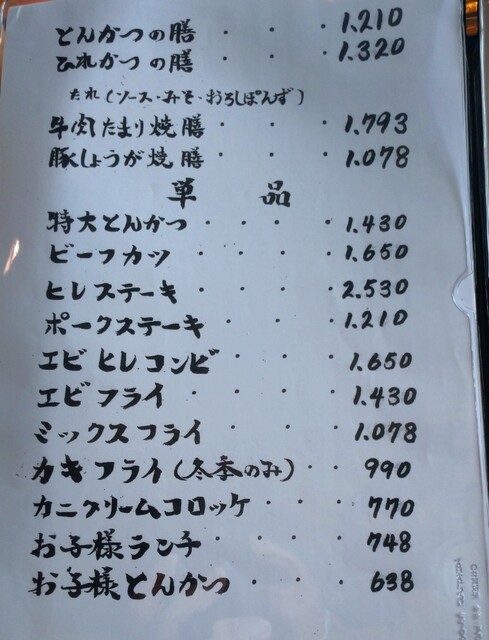 とんかつの膳・・・1.210
ひれかつの膳・・・1.320
たれ(ソース・みそ・おろしぽんず)
牛肉たまり焼膳・・・1.793
豚しょうが焼膳・・・1.078
単品
特大とんかつ・・・・1.430
ビーフカツ・・・・1.650
ヒレステーキ・・・・2.530
ポークステーキ・・・1.210
エビヒレコンビ・・・1.650
エビフライ・・・・1.430
ミックスフライ・・・1.078
カキフライ(冬季のみ)・・990
カニクリームコロッケ・・770
お子様ランチ・・・・748
お子様とんかつ・・・638